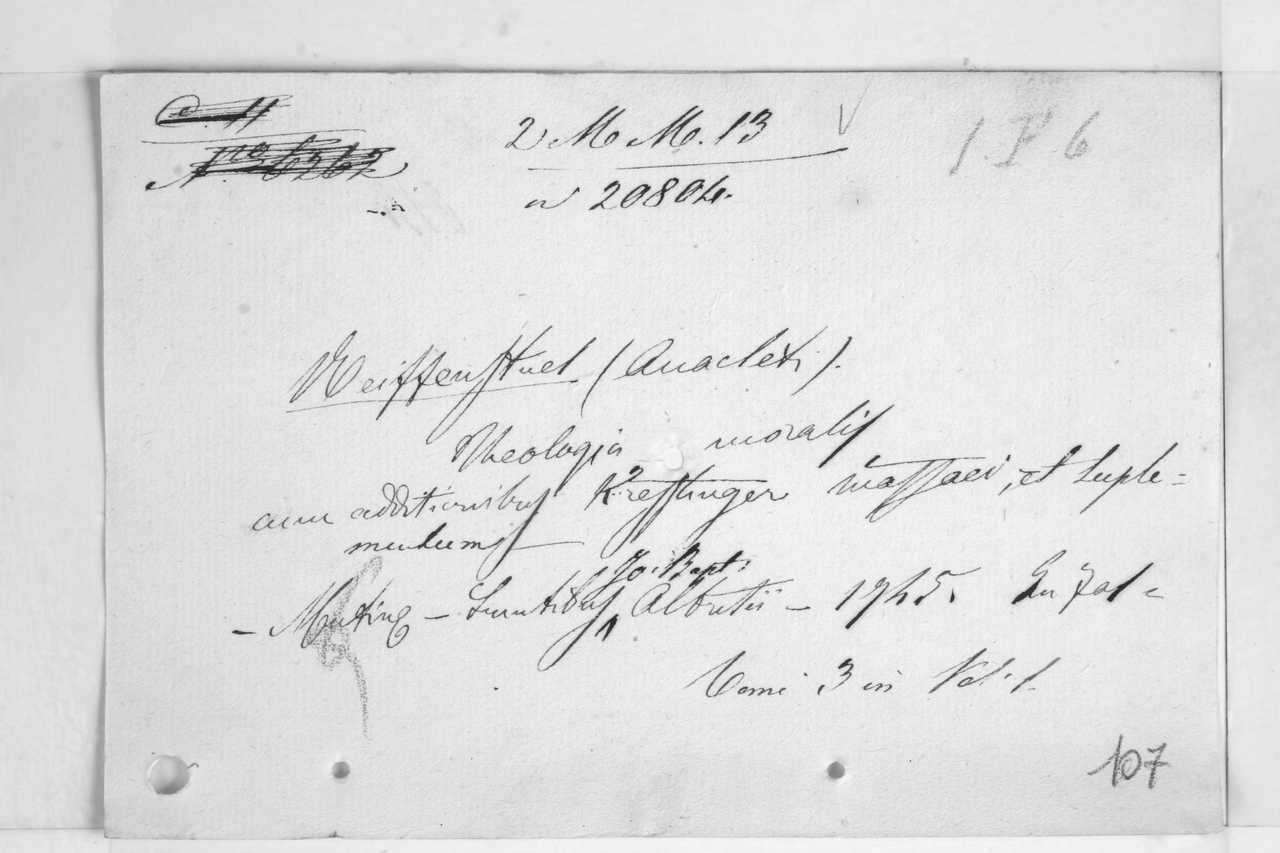 C. 11
Nro 6262
2 M M. 13
n 20804.
1 P 6
Reiffenstuel (Anacleti).
Theologia moralis
cum additionibus Kresslinger Massaei, et Suple=
mentums
Jo: Bapt:
– Mutinę – Sumtibus Albritii – 1745. In Fol=
Tomi 3 in Vol: 1.
107